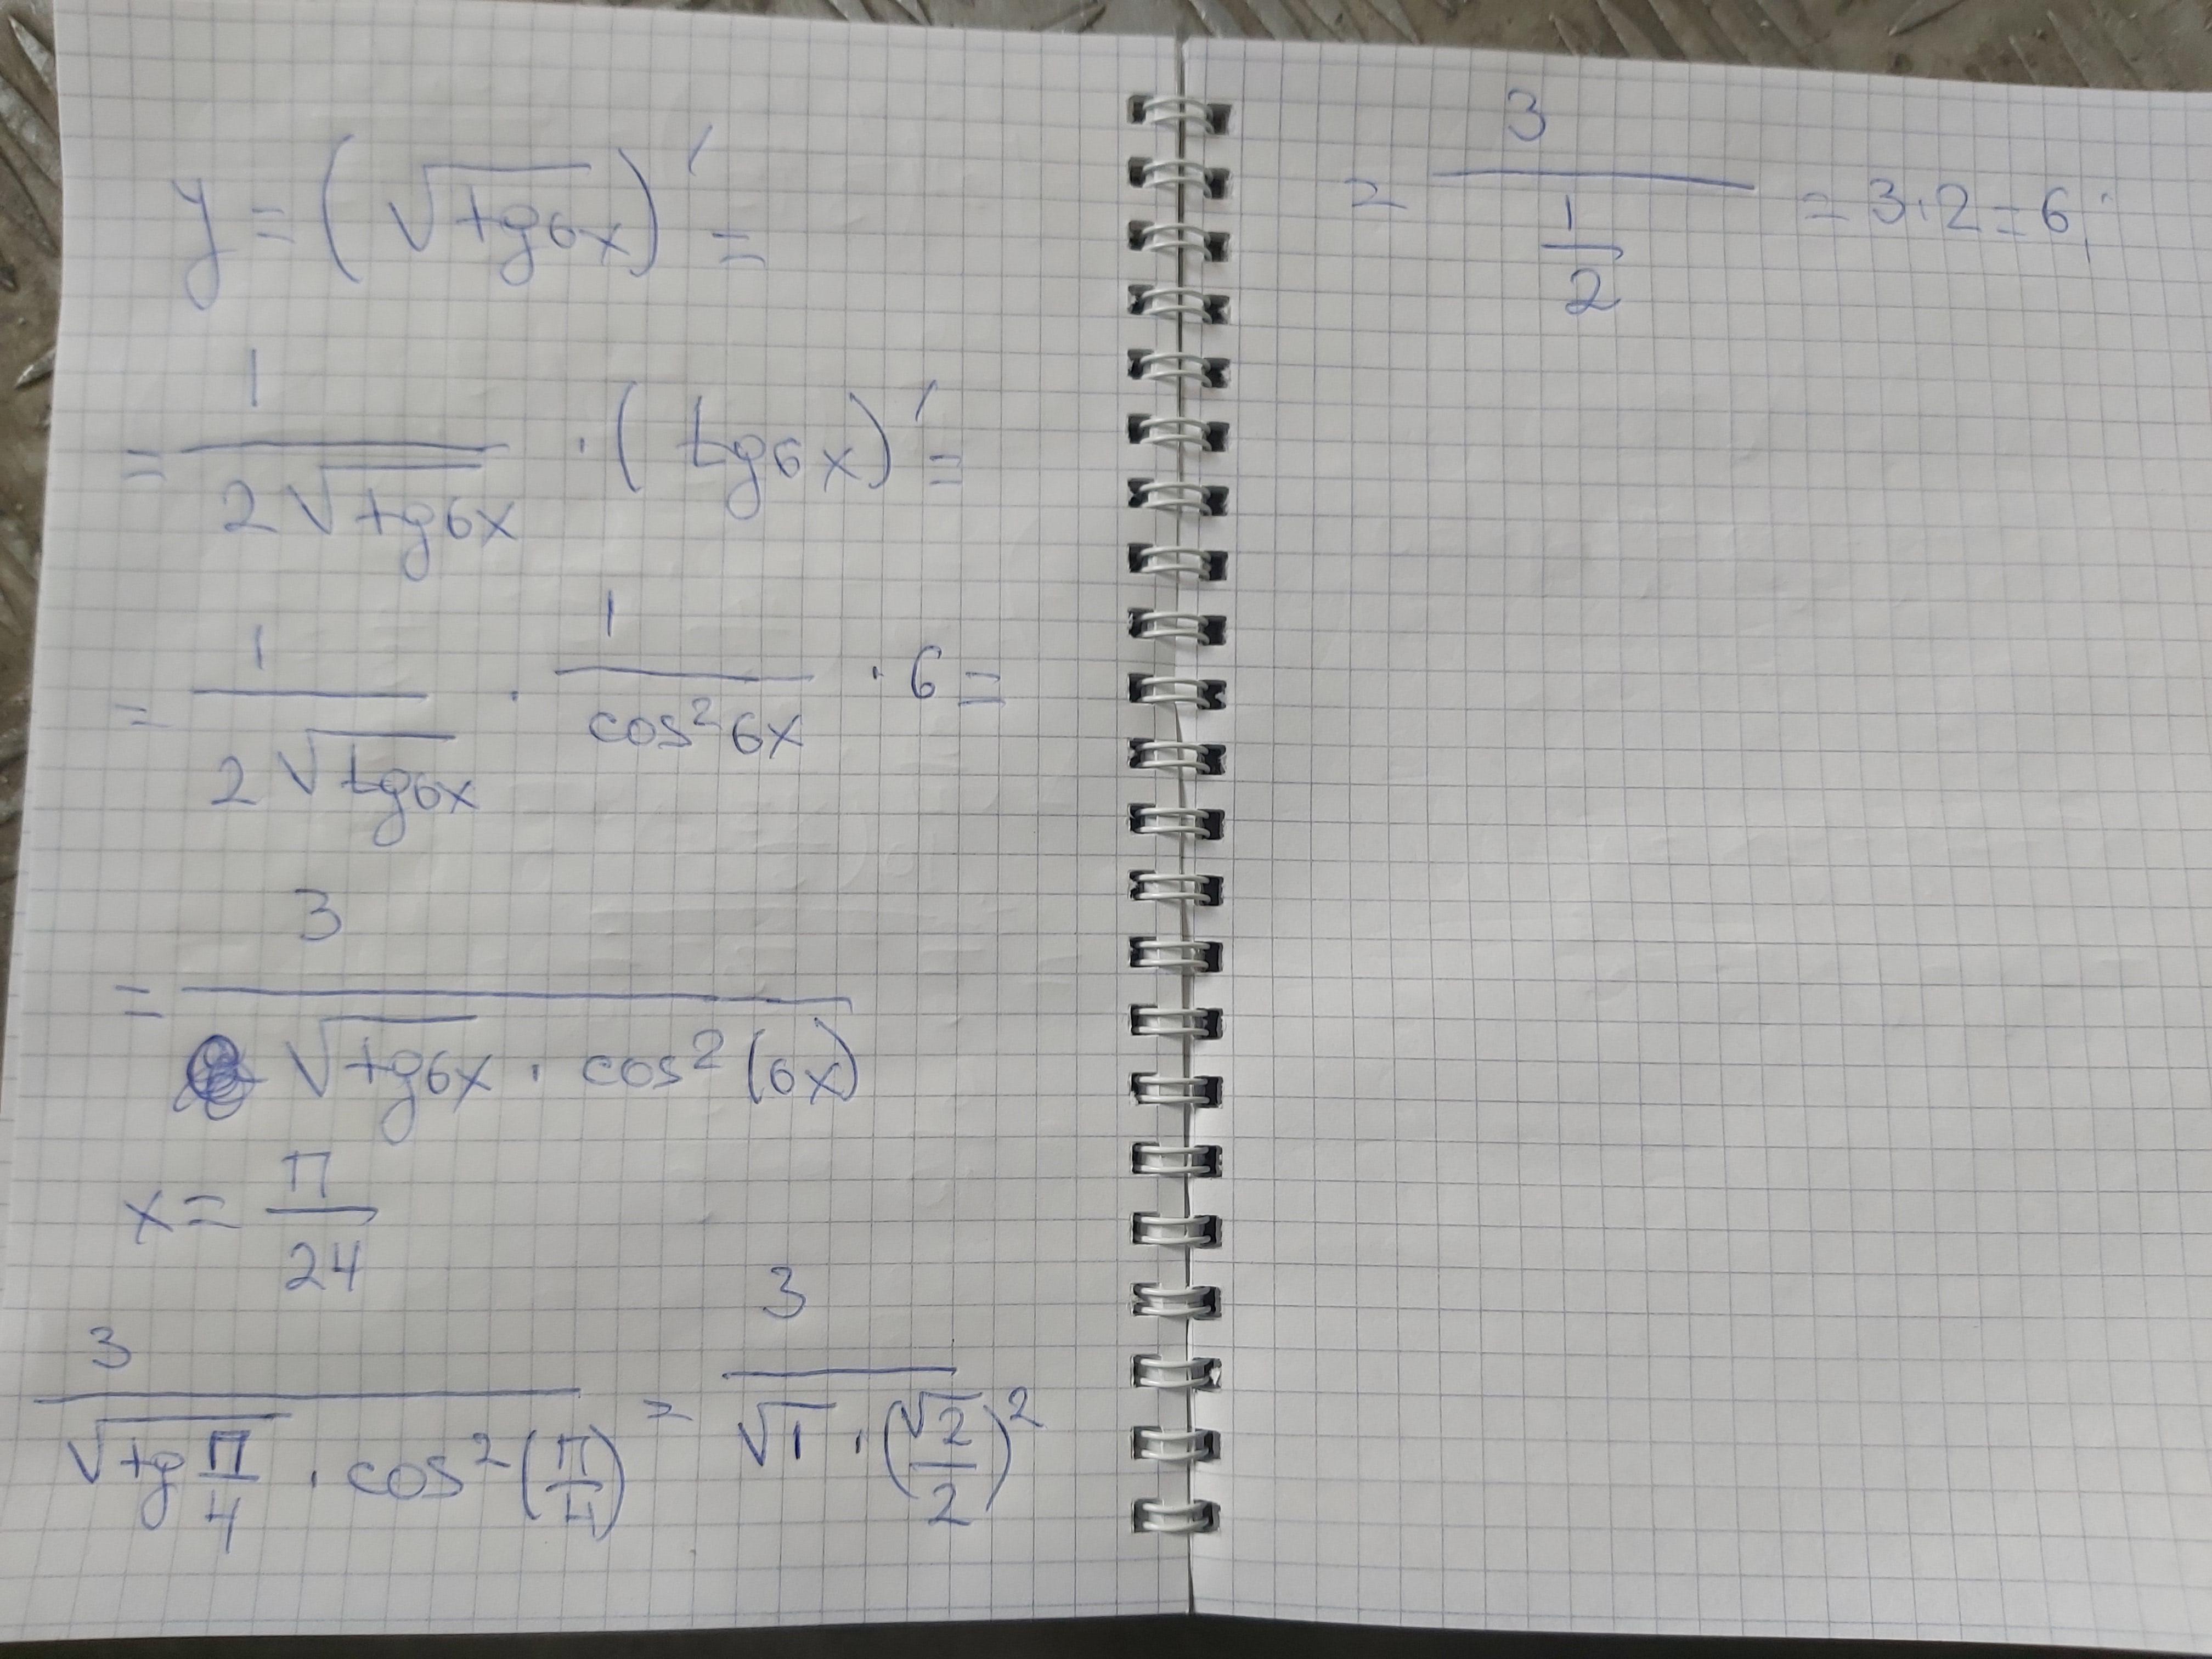 y = (√tg6x)′ =
= 1/(2√tg6x) · (tg6x)′ =
= 1/(2√tg6x) · 1/(cos²6x) · 6 =
= 3/(√tg6x · cos²(6x))
x = π/24
3/(√tg π/4 · cos²(π/4)) = 3/(√1 · (√2/2)²)
= 3/(1/2) = 3·2=6;